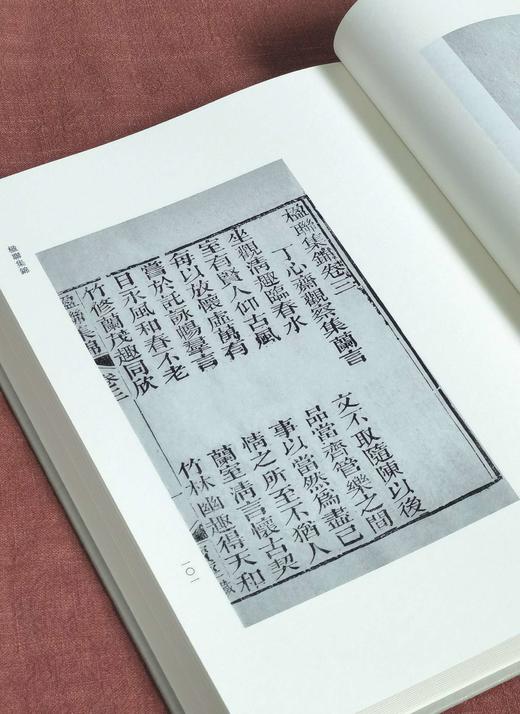 楹聯集錦
楹聯集錦卷三
丁心齋觀察集蘭言
坐觀清趣臨春水 文不取隨陳以後
室有賢人仰古風 品當齊管樂之間
每以放懷虛萬有 事以當然爲盡己
嘗於託詠暢羣言 情之所至不猶人
日永風和春不老 蘭室清言懷古契
竹修蘭茂趣同欣 竹林幽趣得天和
楹聯集錦 卷三 一
一〇一